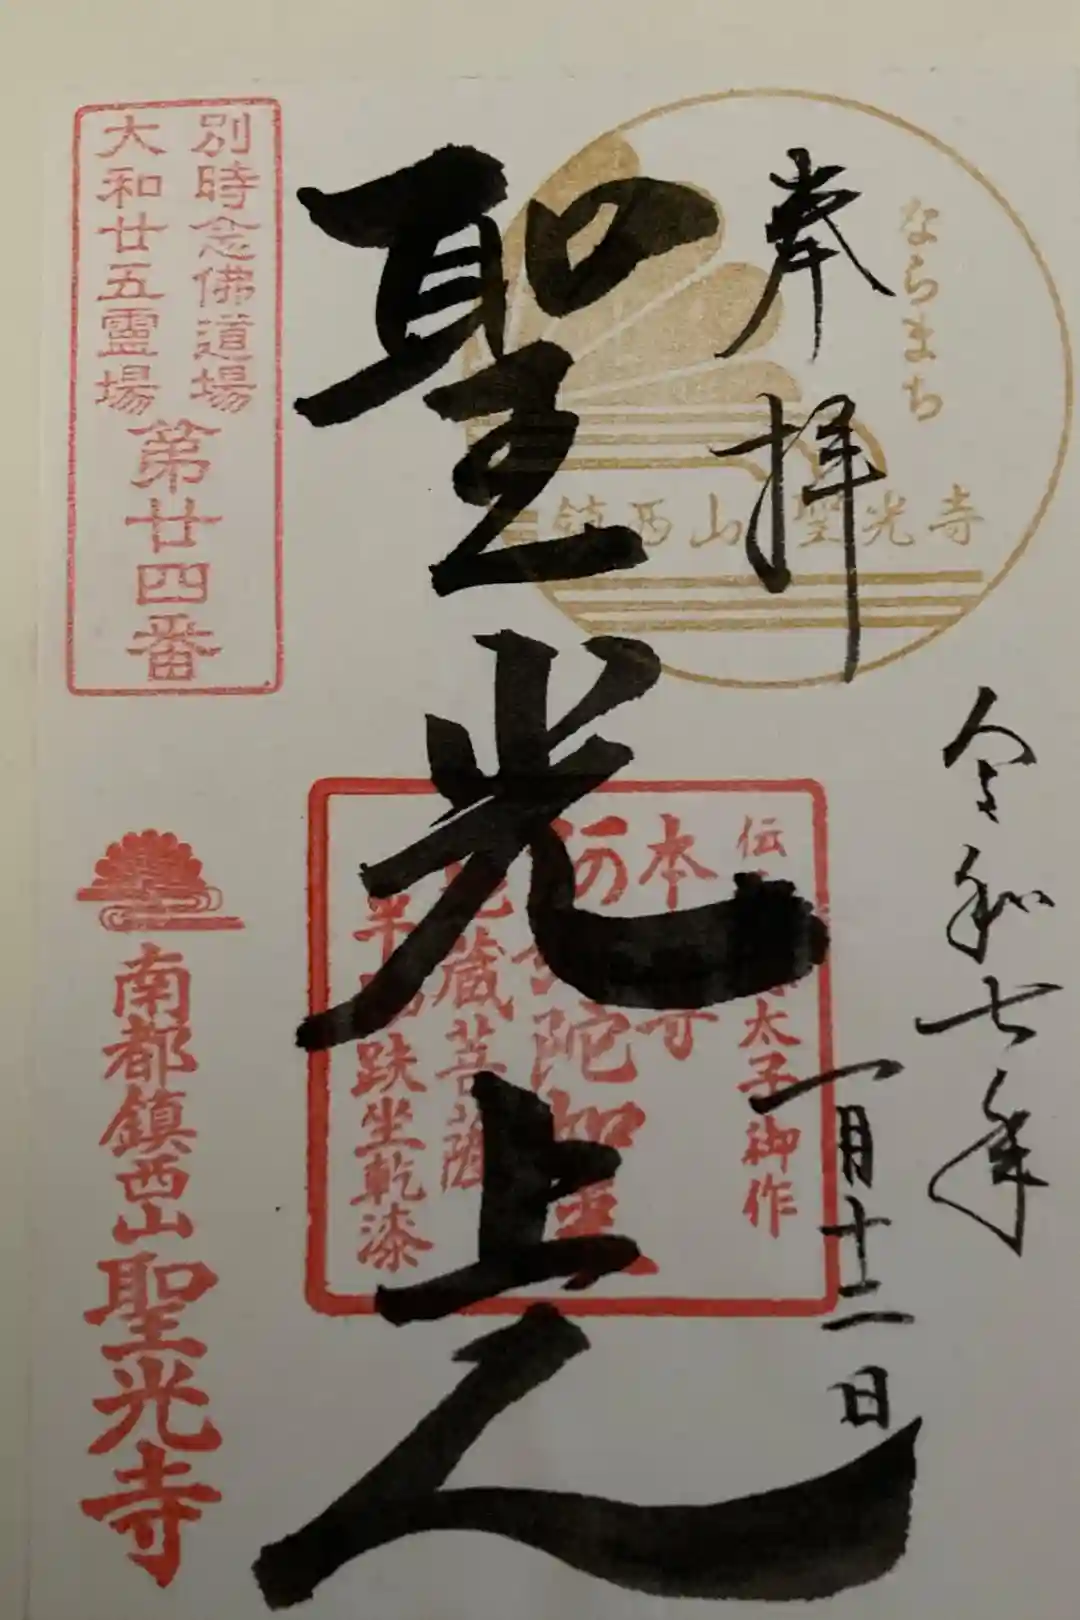 ならまち
鎮西山 聖光寺
奉拝
令和七年
一月十二日
聖光上人
伝 太子御作
本 寺
阿弥陀如来
地蔵菩薩
半跏趺坐乾漆
別時念佛道場
大和廿五霊場
第廿四番
南都鎮西山聖光寺